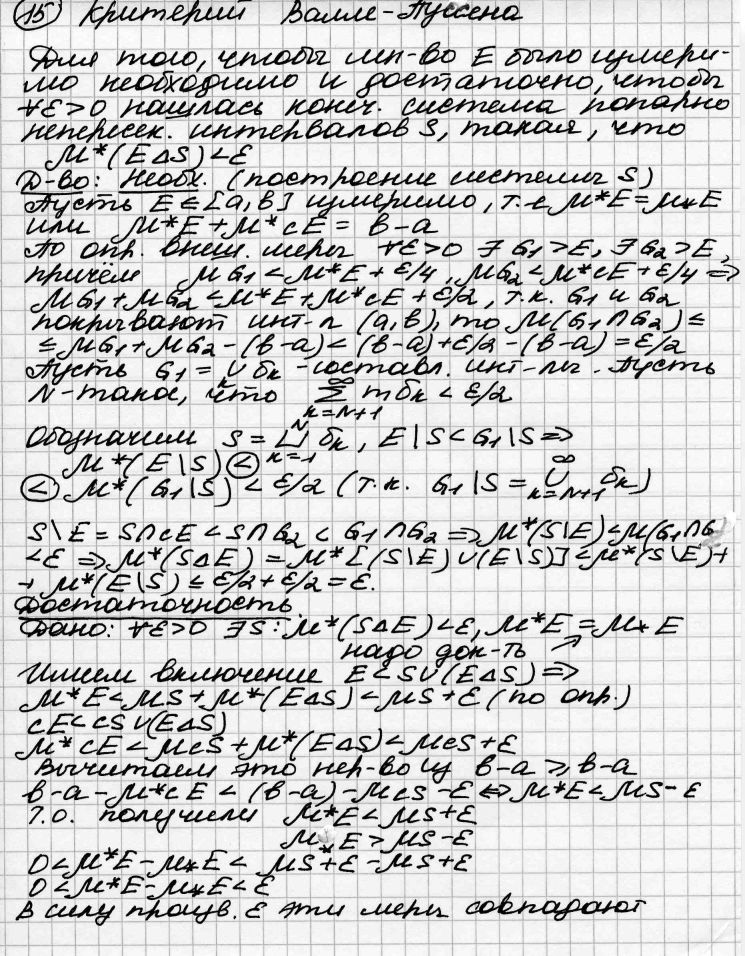 15 Критерий Валле-Пуссена
Для того, чтобы мн-во E было измери-
мо необходимо и достаточно, чтобы
∀ε>0 нашлась конеч. система попарно
непересек. интервалов S, такая, что
μ*(E∆S)<ε
Д-во: Необх. (построение системы S)
Пусть E ⊆ [a,b] измеримо, т.е μ*E=μ⁎E
или μ*E+μ*cE = b-a
По опр. внеш. меры ∀ε>0 ∃G₁>E, ∃G₂>E,
причём μG₁<μ*E+ε/4, μG₂<μ*cE+ε/4 ⇒
μG₁+μG₂<μ*E+μ*cE+ε/2, т.к. G₁ и G₂
покрывают инт-л (a,b), то μ(G₁∩G₂) ≤
≤ μG₁+μG₂-(b-a)<(b-a)+ε/2-(b-a)=ε/2
Пусть G₁=∪ₖδₖ - составл. инт-лы. Пусть
N-такое, что ∞∑k=N+1 mδₖ<ε/2
Обозначим S = N⊔k=1 δₖ, E\S<G₁\S ⇒
μ*(E\S) <
< μ*(G₁\S) < ε/2 (т.к. G₁\S = ∞∪k=N+1 δₖ)
S\E = S∩cE<S∩G₂<G₁∩G₂ ⇒ μ*(S\E)<μ(G₁∩G
<ε ⇒ μ*(S∆E) = μ*[(S\E)∪(E\S)] ≤ μ*(S\E)+
+ μ*(E\S) ≤ ε/2+ε/2=ε.
Достаточность.
Дано: ∀ε>0 ∃S: μ*(S∆E)<ε, μ*E=μ⁎E
надо док-ть ↗
Имеем включение E<S∪(E∆S) ⇒
μ*E<μS+μ*(E∆S)<μS+ε (по опр.)
cE<cS∪(E∆S)
μ*cE<μcS+μ*(E∆S)<μcS+ε
Вычитаем это нер-во из b-a ≥ b-a
b-a-μ*cE<(b-a)-μcS-ε ⇔ μ*E<μS-ε
Т.о. получили μ*E<μS+ε
μ⁎E>μS-ε
0<μ*E-μ⁎E<μS+ε-μS+ε
0<μ*E-μ⁎E<ε
В силу произв. ε эти меры совпадают